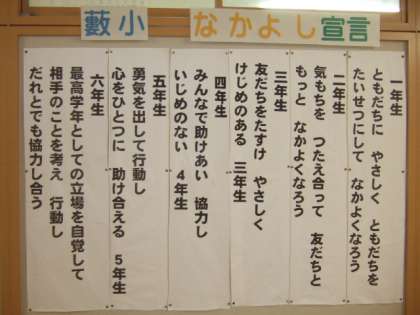 藪小 なかよし宣言
一年生
ともだちに やさしく ともだちを
たいせつにして なかよくなろう
二年生
気もちを つたえ合って 友だちと
もっと なかよくなろう
三年生
友だちをたすけ やさしく
けじめのある 三年生
四年生
みんなで助けあい 協力し
いじめのない 4年生
五年生
勇気を出して行動し
心をひとつに 助け合える 5年生
六年生
最高学年としての立場を自覚して
相手のことを考え 行動し
だれとでも協力し合う